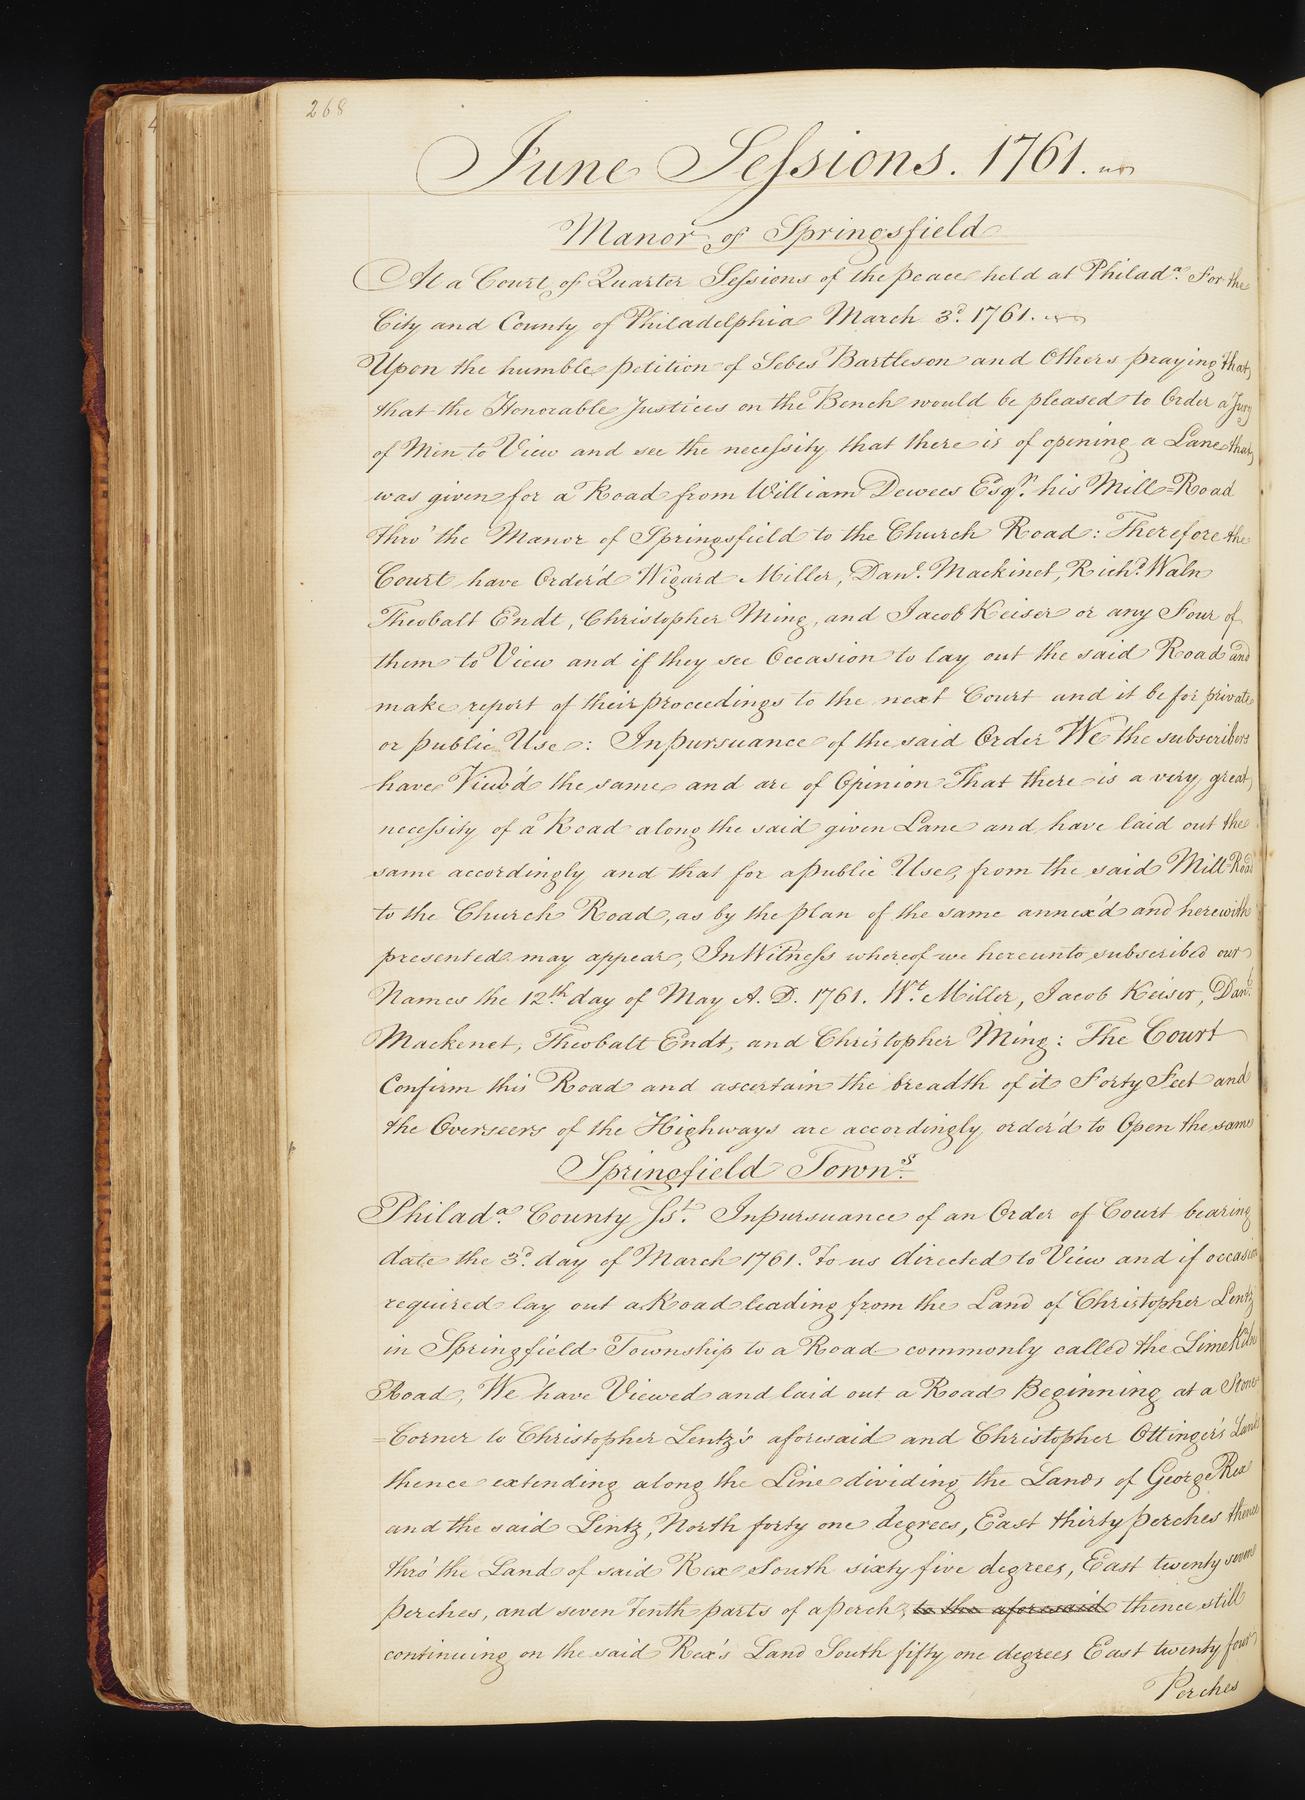 268
June Sessions. 1761.
Manor of Springsfield
At a Court of Quarter Sessions of the peace held at Philada. For the
City and County of Philadelphia March 3d. 1761.
Upon the humble petition of Sebes Bartleson and Others praying that
that the Honorable Justices on the Bench would be pleased to Order a Jury
of Men to View and see the necessity that there is of opening a Lane that
was given for a Road from William Dewees Esqr. his Mill=Road
thro' the Manor of Springsfield to the Church Road: Therefore the
Court have Order'd Wigard Miller, Danl. Mackinet, Richd. Waln
Theobalt Endt, Christopher Ming, and Jacob Keiser or any Four of
them to View and if they see Occasion to lay out the said Road and
make report of their proceedings to the next Court and it be for private
or public Use: In pursuance of the said Order We the subscribers
have View'd the same and are of Opinion That there is a very great
necessity of a Road along the said given Lane and have laid out the
same accordingly and that for a public Use, from the said Mill=Road
to the Church Road, as by the plan of the same annex'd and herewith
presented may appear, In Witness whereof we hereunto subscribed our
Names the 12th day of May A. D. 1761. Wt. Miller, Jacob Keiser, Danl.
Mackenet, Theobalt Endt, and Christopher Ming: The Court
Confirm this Road and ascertain the breadth of it Forty Feet and
the Overseers of the Highways are accordingly order'd to Open the same
Springfield Towns.
Philada. County Sst. In pursuance of an Order of Court bearing
date the 3d. day of March 1761. To us directed to View and if occasion
required lay out a Road leading from the Land of Christopher Lentz
in Springfield Township to a Road commonly called the Lime Kiln
Road, We have Viewed and laid out a Road Beginning at a Stone
=Corner to Christopher Lentz's aforesaid and Christopher Ottinger's Lands
thence extending along the Line dividing the Lands of George Rex
and the said Lentz, North forty one degrees, East thirty perches thence
thro' the Land of said Rex South sixty five degrees, East twenty seven
perches, and seven Tenth parts of a perch, to the aforesaid thence still
continuing on the said Rex's Land South fifty one degrees East twenty four
Perches